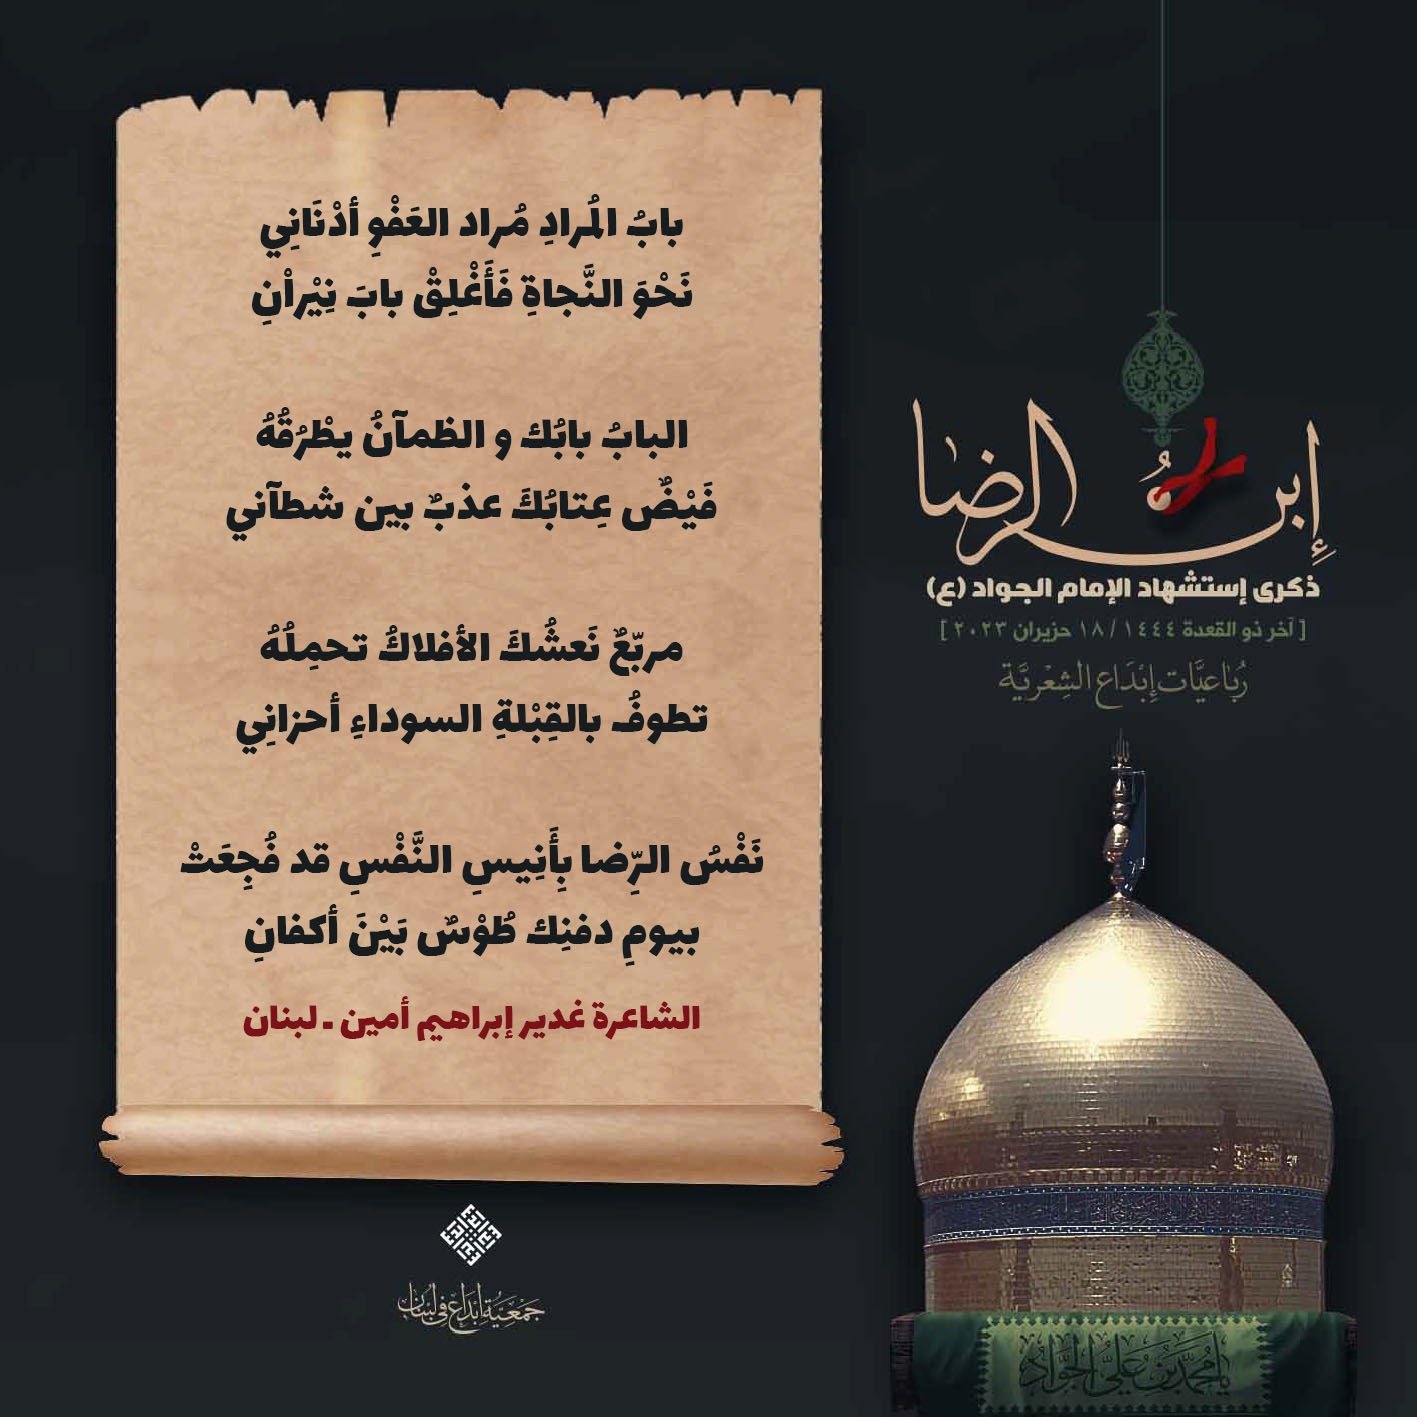 بابُ المُرادِ مُراد العَفْوِ أدْنَانِي
نَحْوَ النَّجاةِ فَأَغْلِقْ بابَ نِيْراْنِ
البابُ بابُك و الظمآنُ يطْرُقُهُ
فَيْضٌ عِتابُكَ عذبٌ بين شطآني
مربّعٌ نَعشُكَ الأفلاكُ تحمِلُهُ
تطوفُ بالقِبْلةِ السوداءِ أحزانِي
نَفْسُ الرِّضا بِأَنِيسِ النَّفْسِ قد فُجِعَتْ
بيومِ دفنِك طُوْسٌ بَيْنَ أكفانِ
الشاعرة غدير إبراهيم أمين ـ لبنان
إبن الرضا
ذكرى إستشهاد الإمام الجواد (ع)
[ آخر ذو القعدة ١٤٤٤ / ١٨ حزيران ٢٠٢٣ ]
رُبَاعيَّات إِبْدَاع الشِعْريَّة
يا مُحَمَّد بن عَلِيٍّ الجَوَادُ
جَمْعِيَّة إبْدَاع في لبنان